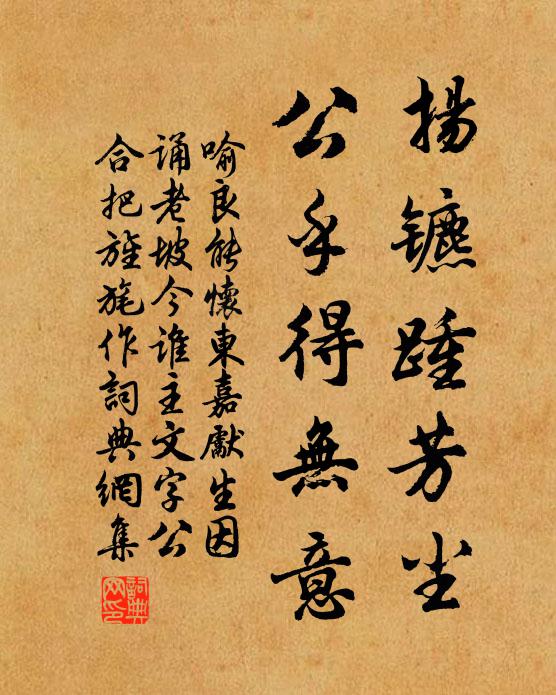 揚鑣踵芳尘
公乎得無意
喻良能懷東嘉獻生因
誦老坡今誰主文字公
合把旌旄作詞典網集
詞典网印